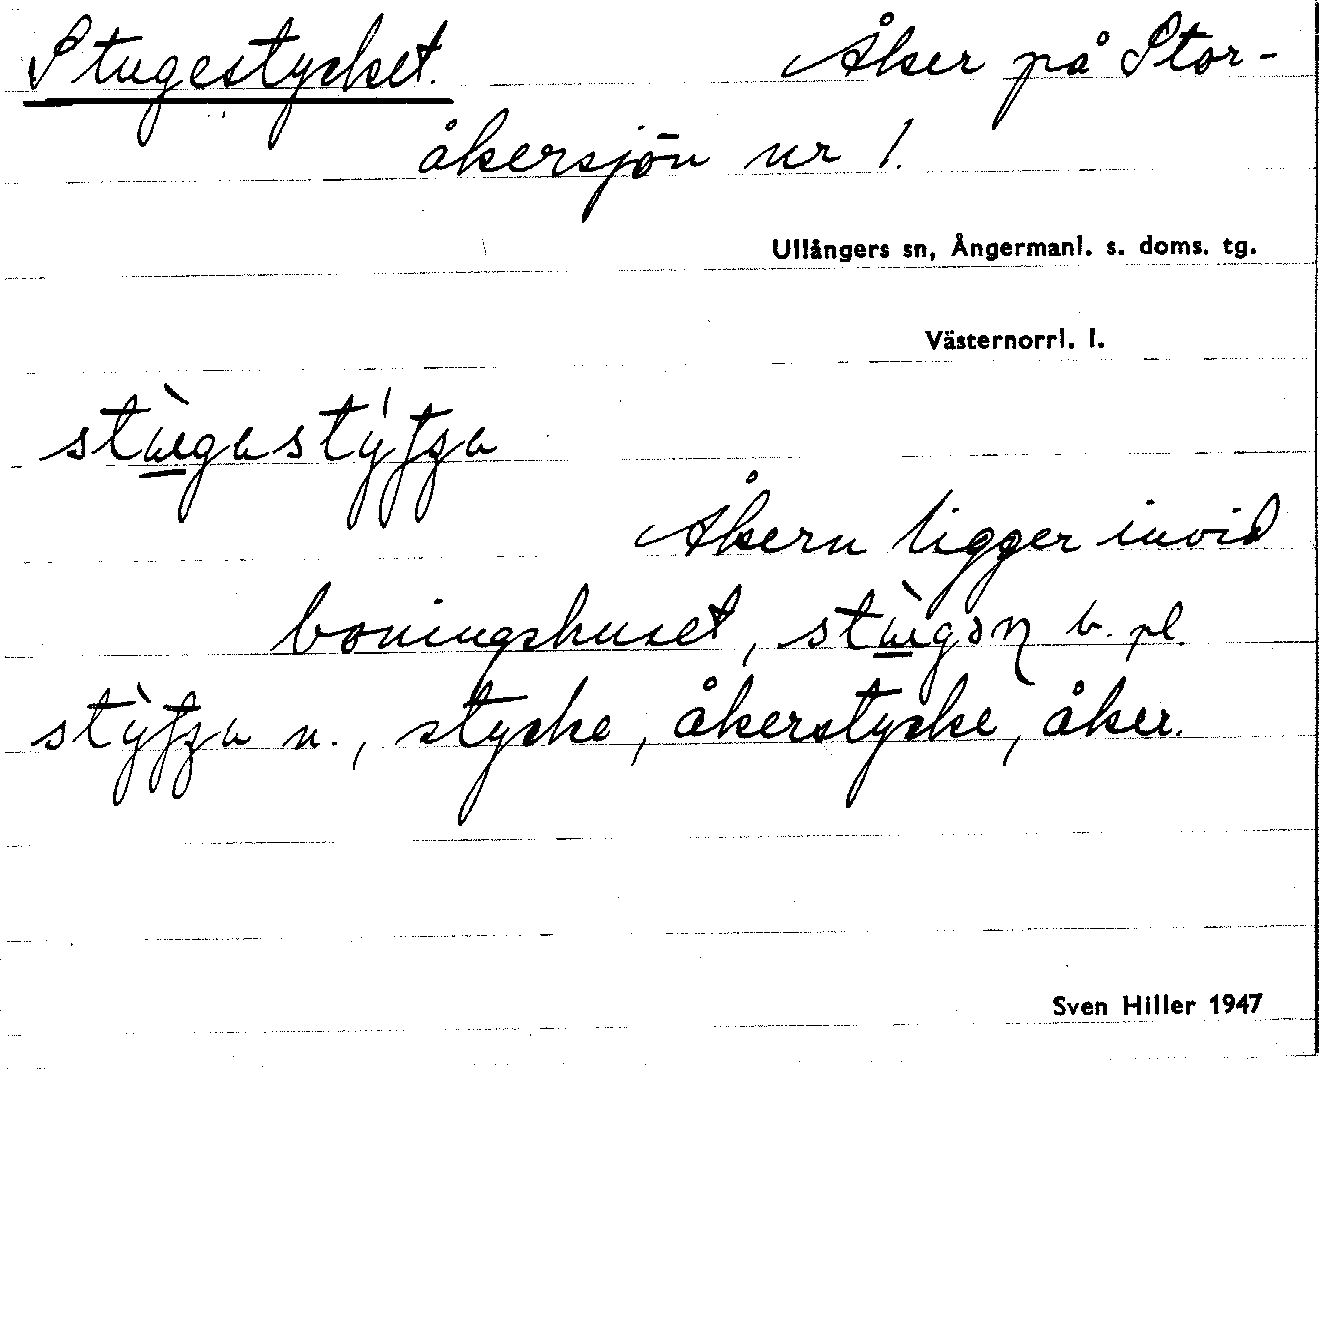 Stugestycket. Åker på Stor-
åkersjön nr 1.
Ullångers sn, Ångermanl. s. doms. tg.
Västernorrl. l.
Åkern ligger invid
boningshuset, b. pl.
n., stycke, åkerstycke, åker.
Sven Hiller 1947